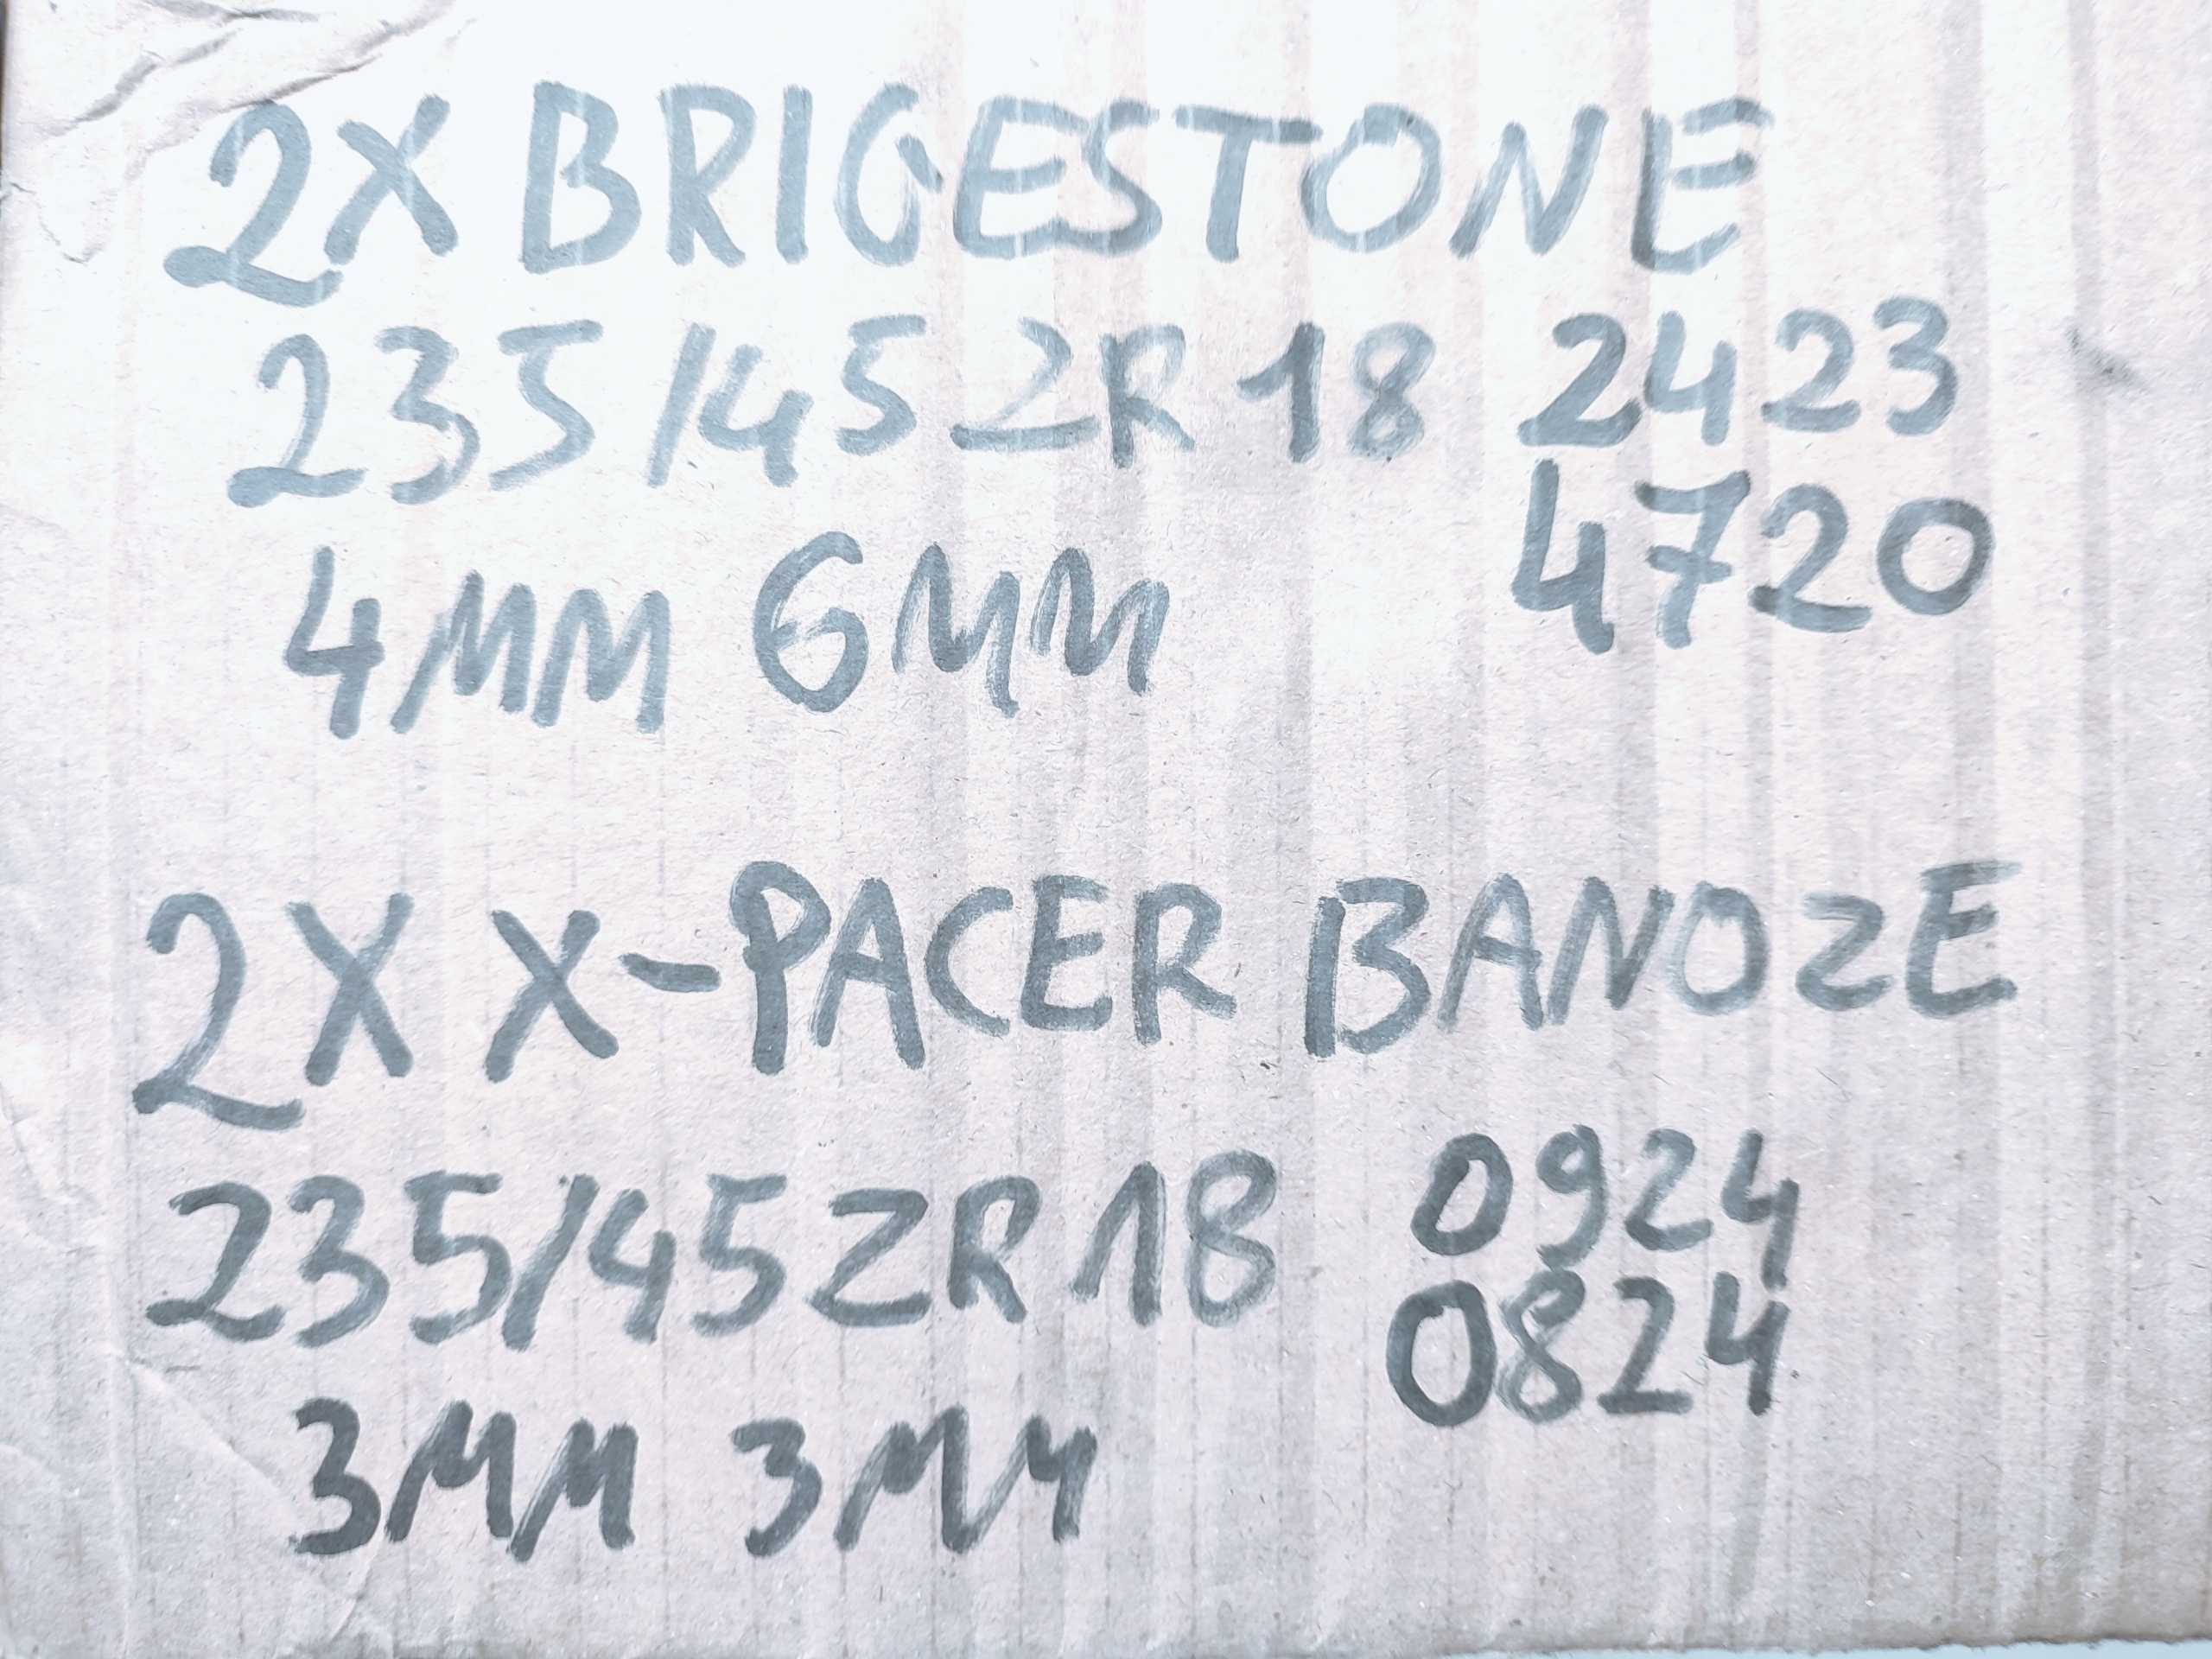 2X BRIGESTONE
235/45ZR18 2423
4720
4MM 6MM
2X X-PACER BANOZE
235/45ZR18 0924
0824
3MM 3MM